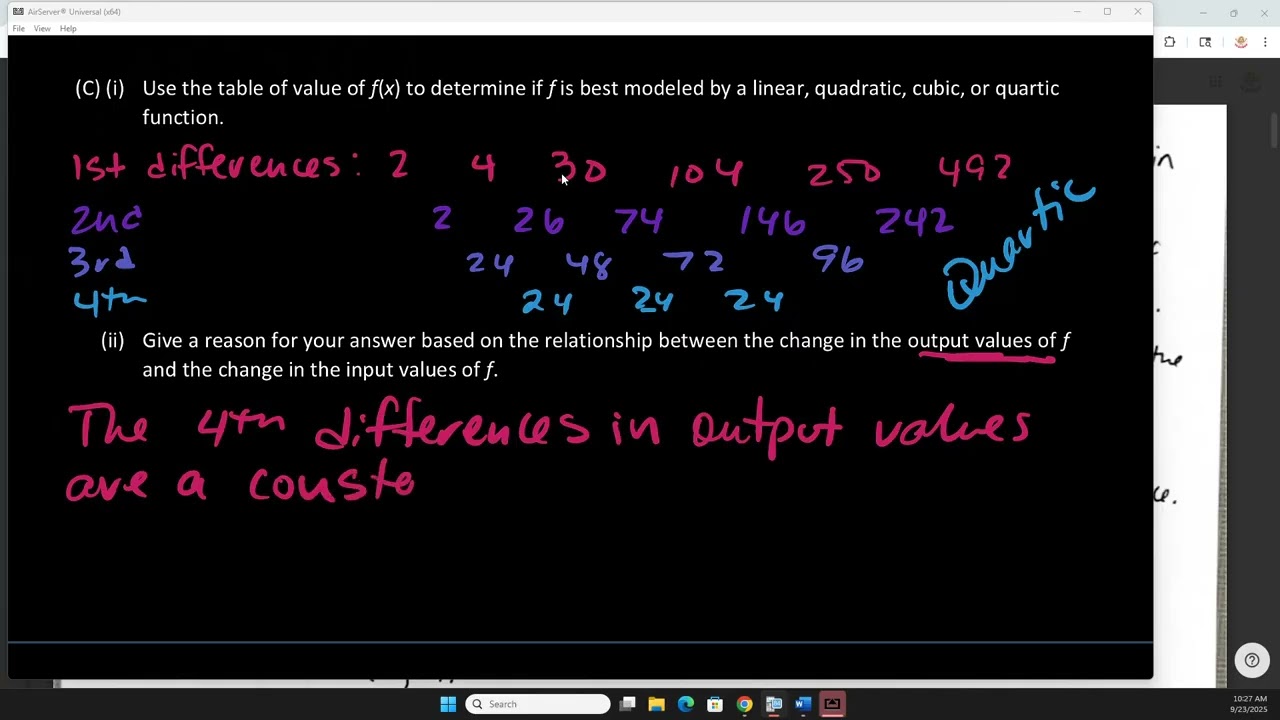 AirServer® Universal (x64)
File View Help
(C) (i) Use the table of value of f(x) to determine if f is best modeled by a linear, quadratic, cubic, or quartic
function.
1st differences: 2 4 30 104 250 492
2nd 2 26 74 146 242
3rd 24 48 72 96
4th 24 24 24
Quartic
(ii) Give a reason for your answer based on the relationship between the change in the output values of f
and the change in the input values of f.
The 4th differences in output values
are a conste
in
the
ce.
Search
10:27 AM
9/23/2025